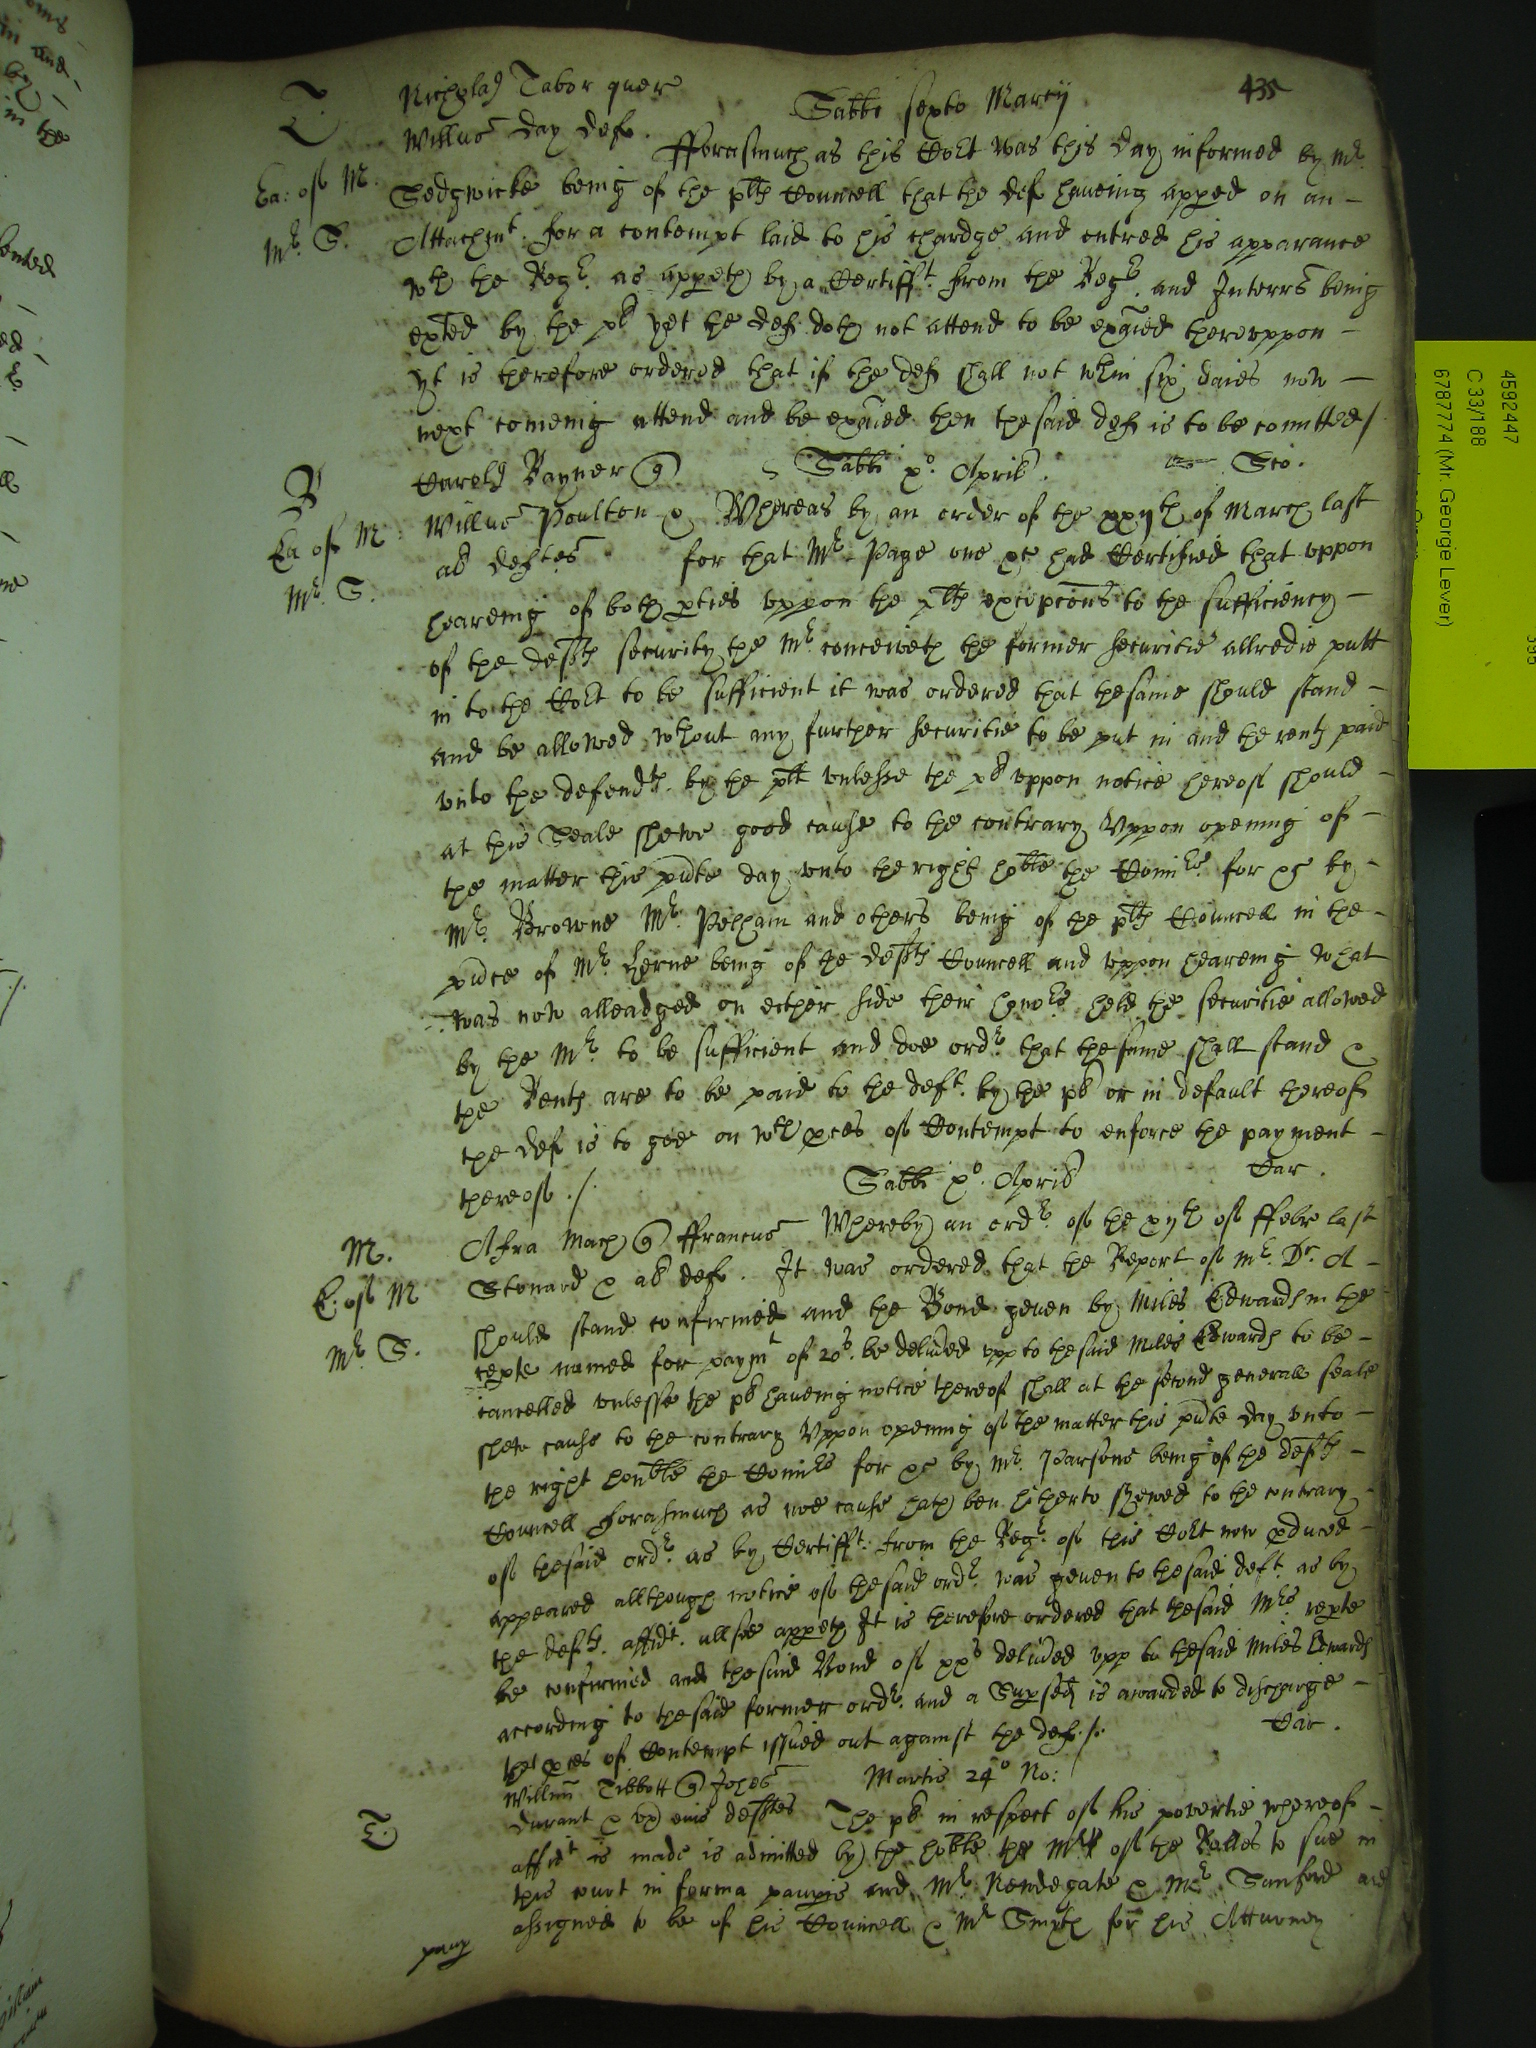 435
T. Nicholas Tabor quer Sabbi sexto Marcij
Willus Day def. Fforasmuch as this Cort was this day informed by Mr.
Ea: of M. Sedgwicke being of the plts Councell that the def haveing apped on an –
Mr. S. Attachmt. for a contempt laid to his chardge and entred his apparance
wth the Regr. as appeth by a Certifft. from the Regr. and Interrs being
exted by the pl yet the def doth not attend to be exaied thereuppon –
yt is therefore ordered that if the def shall not wthin six daies now –
next comeing attend and be exaied then the said def is to be comitted /
R Carols Rayner Sabbi xo. April. Sco.
Ea of M: Willus Poulton & Whereas by an order of the xxyth of March last
Mr. S. als deftes for that Mr. Page one &c had Certified that uppon
heareing of both pties uppon the plts excepcons to the sufficiency –
of the defts security the Mr. conceiveth the former securitie allredie putt
in to the Cort to be sufficient it was ordered that the same should stand –
and be allowed wthout any further securitie to be put in and the rents paid
unto the defendts. by the plt unlesse the pl uppon notice hereof should –
at this Seale shewe good cause to the contrary Uppon opening of –
the matter this pnte day unto the right hoble the Comrs. for &c by –
Mr. Browne Mr. Pelham and others being of the plts Councell in the –
pnce of Mr. Herne being of the defts Councell and uppon heareing what
was now alleadged on ether side their honors held the securitie allowed
by the Mr. to be sufficient and doe ordr. that the same shall stand &
the Rents are to be paid to the deft. by the pl or in default thereof
the def is to goe on wth pces of Contempt to enforce the payment –
thereof. /. Sabbi xo. April Car.
M. Afra Mach Ffrancus Whereby an ordr. of the xyth of ffebr last
E: of M Stonard & als def. It was ordered that the Report of Mr. Dr. A –
Mr. S. should stand confirmed and the Bond geven by Miles Edwards in the
repte named for paymt of 20s. be delived upp to the said Miles Edwards to be –
cancelled unlesse the pl haveing notice thereof shall at the second generall seale
shew cause to the contrary Uppon opening of the matter this pnte day unto –
the right honble the Comrs for &c by Mr. Parsons being of the defts –
Councell Forasmuch as noe cause hath ben hitherto shewed to the contrary –
of the said ordr. as by Certifft. from the Regr. of this Cort now pduced –
appeared allthough notice of the said ordr. was geven to the said deft. as by
the defts. affidt. allsoe appeth It is therefore ordered that the said Mrs. repte
be confirmed and the said Bond of xxs delived upp to the said Miles Edwards
according to the said former ordr. and a Supsed is awarded to discharge –
the pces of Contempt issued out against the def. /. Car.
Willim Tibbott Johes Martis 24o No:
T. Durant & ux eius deftes The pl in respect of his povertie whereof –
affidt is made is admitted by the hoble the Mr of the Rolles to sue in
this court in forma paupis and Mr. Rendegate & Mr. Sanford are
assigned to be of his Councell & Mr Smyth for his Atturney
paup
4592447
C 33/188
6787774 (Mr. George Lever)